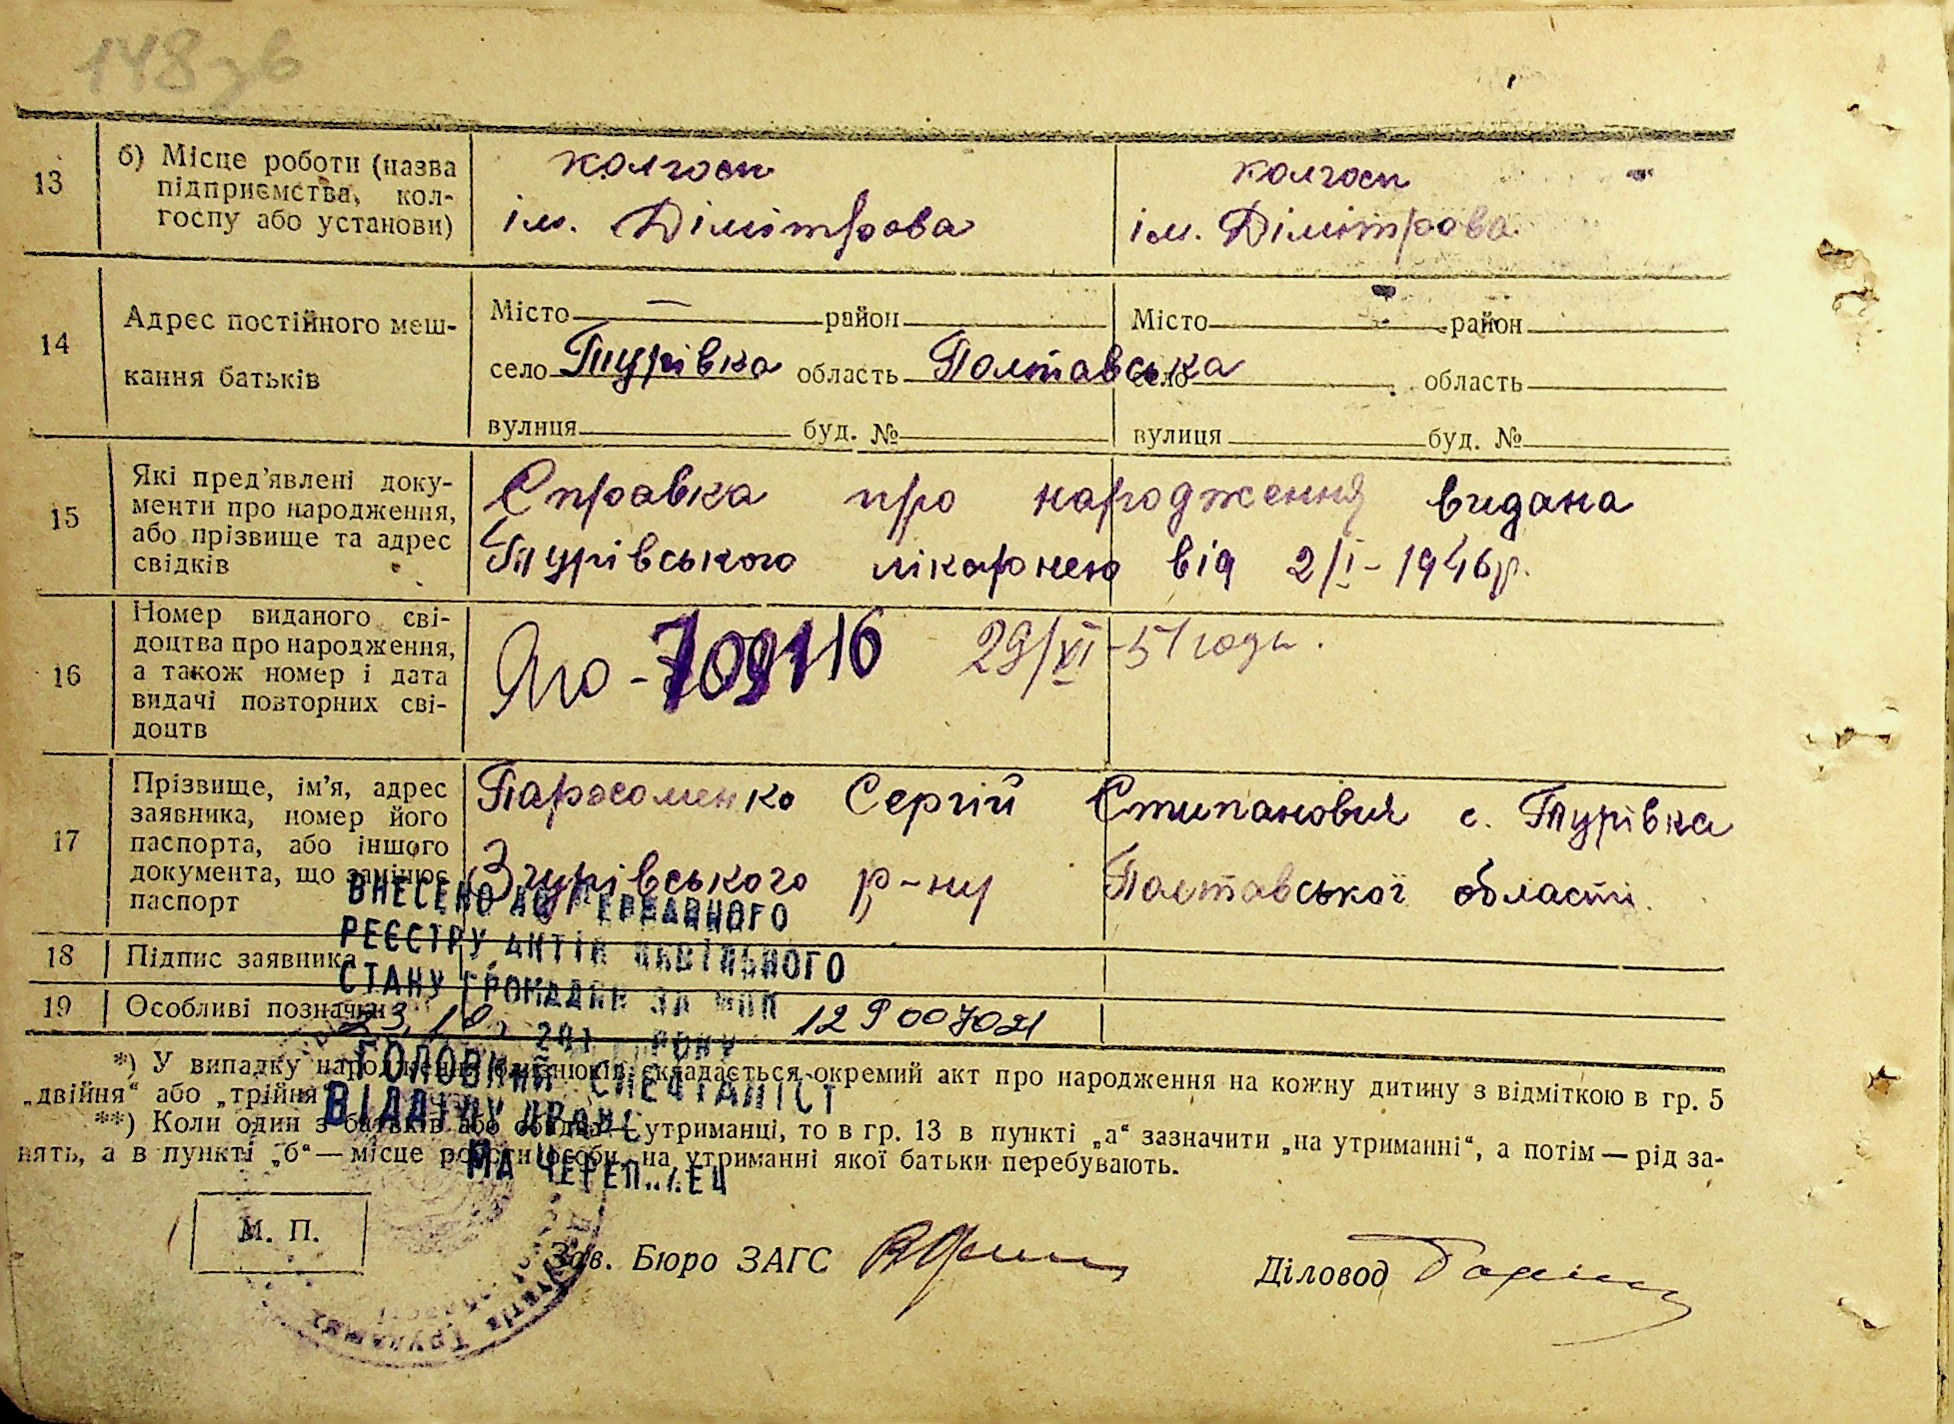 148зв
13
б) Місце роботи (назва
підприємства, кол-
госпу або установи)
колгосп
ім. Дімітрова
колгосп
ім. Дімітрова
14
Адрес постійного меш-
кання батьків
Місто — район
село Турівка область Полтавська
вулиця буд. №
Місто район
село область
вулиця буд. №
15
Які пред'явлені доку-
менти про народження,
або прізвище та адрес
свідків
Справка про народження видана
Турівського лікарнею від 2/I-1946р.
16
Номер виданого сві-
доцтва про народження,
а також номер і дата
видачі повторних сві-
доцтв
709116 29/VI-51 годы.
17
Прізвище, ім'я, адрес
заявника, номер його
паспорта, або іншого
документа, що замінює
паспорт
Сергій Стипанович с. Турівка
Згурівського р-ну Полтавської області.
18
Підпис заявника
19
Особливі позначки
12 9 007021
ВНЕСЕНО ДО ДЕРЖАВНОГО
РЕЄСТРУ АКТІВ ЦИВІЛЬНОГО
СТАНУ ГРОМАДЯН ЗА
РОКУ
ГОЛОВНИЙ СПЕЦІАЛІСТ
ВІДДІЛУ ДРАЦС
*) У випадку народження близнюків складається окремий акт про народження на кожну дитину з відміткою в гр. 5
„двійня“ або „трійня“
**) Коли один з батьків або обидва — утриманці, то в гр. 13 в пункті „а“ зазначити „на утриманні“, а потім — рід за-
нять, а в пункті „б“ — місце роботи особи, на утриманні якої батьки перебувають.
М. П.
Зав. Бюро ЗАГС
Діловод